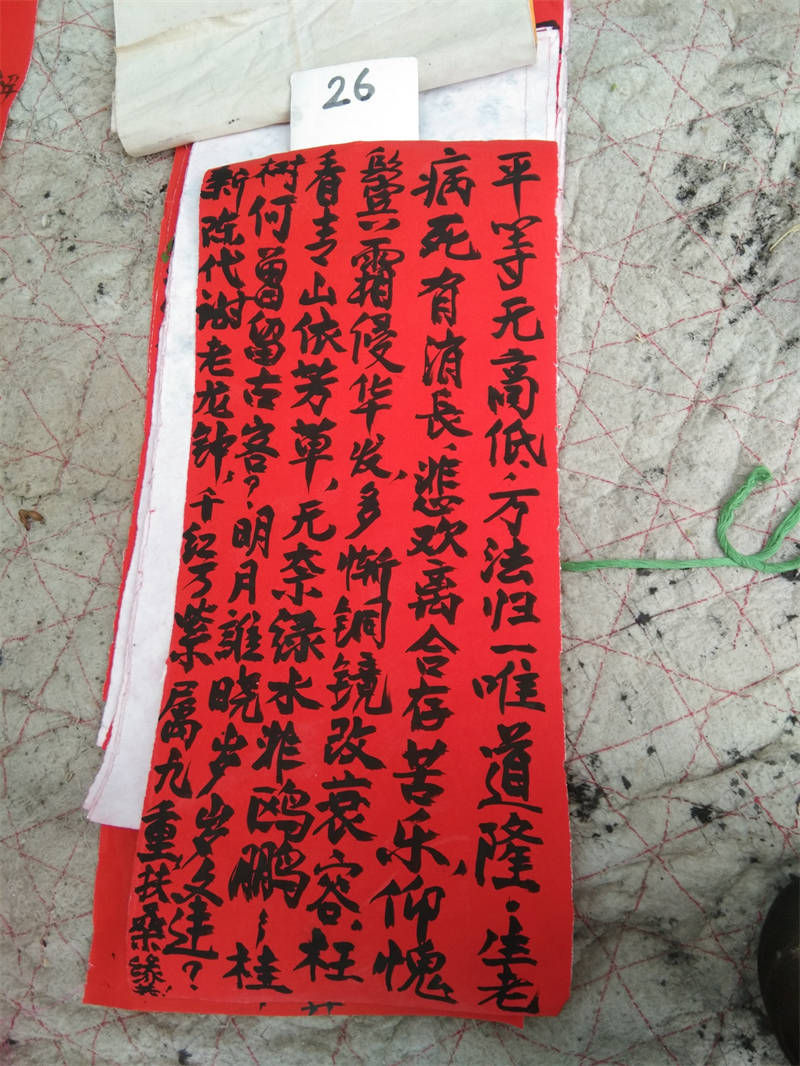 26
平等无高低，万法归一唯道隆。生老
病死有消長，悲欢离合存苦乐，仰愧
鬓霜侵华发，多惭铜镜改衰容，枉
香青山依芳草，无奈绿水非鸥鹏，桂
树何曾留古客？明月谁晓岁岁逢？
新陈代谢老龙钟，千红万紫属九重，扶桑缘